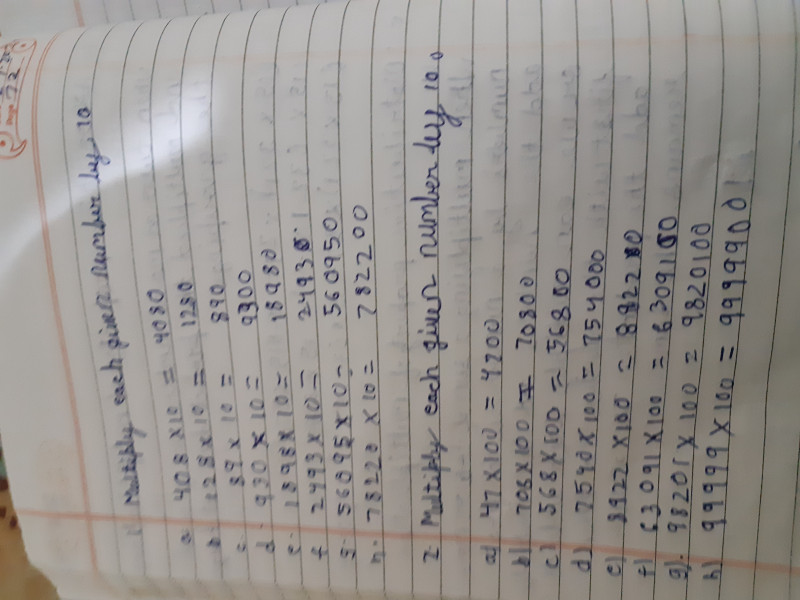 Page 72
1) Multiply each given number by 10
a. 408 x 10 = 4080
b. 128 x 10 = 1280
c. 89 x 10 = 890
d. 930 x 10 = 9300
e. 1898 x 10 = 18980
f. 2493 x 10 = 24930
g. 56095 x 10 = 560950
h. 78220 x 10 = 782200
2. Multiply each given number by 100
a) 47 x 100 = 4700
b) 708 x 100 = 70800
c) 568 x 100 = 56800
d) 7540 x 100 = 754000
e) 8922 x 100 = 892200
f) 63091 x 100 = 6309100
g). 98201 x 100 = 9820100
h) 99999 x 100 = 9999900